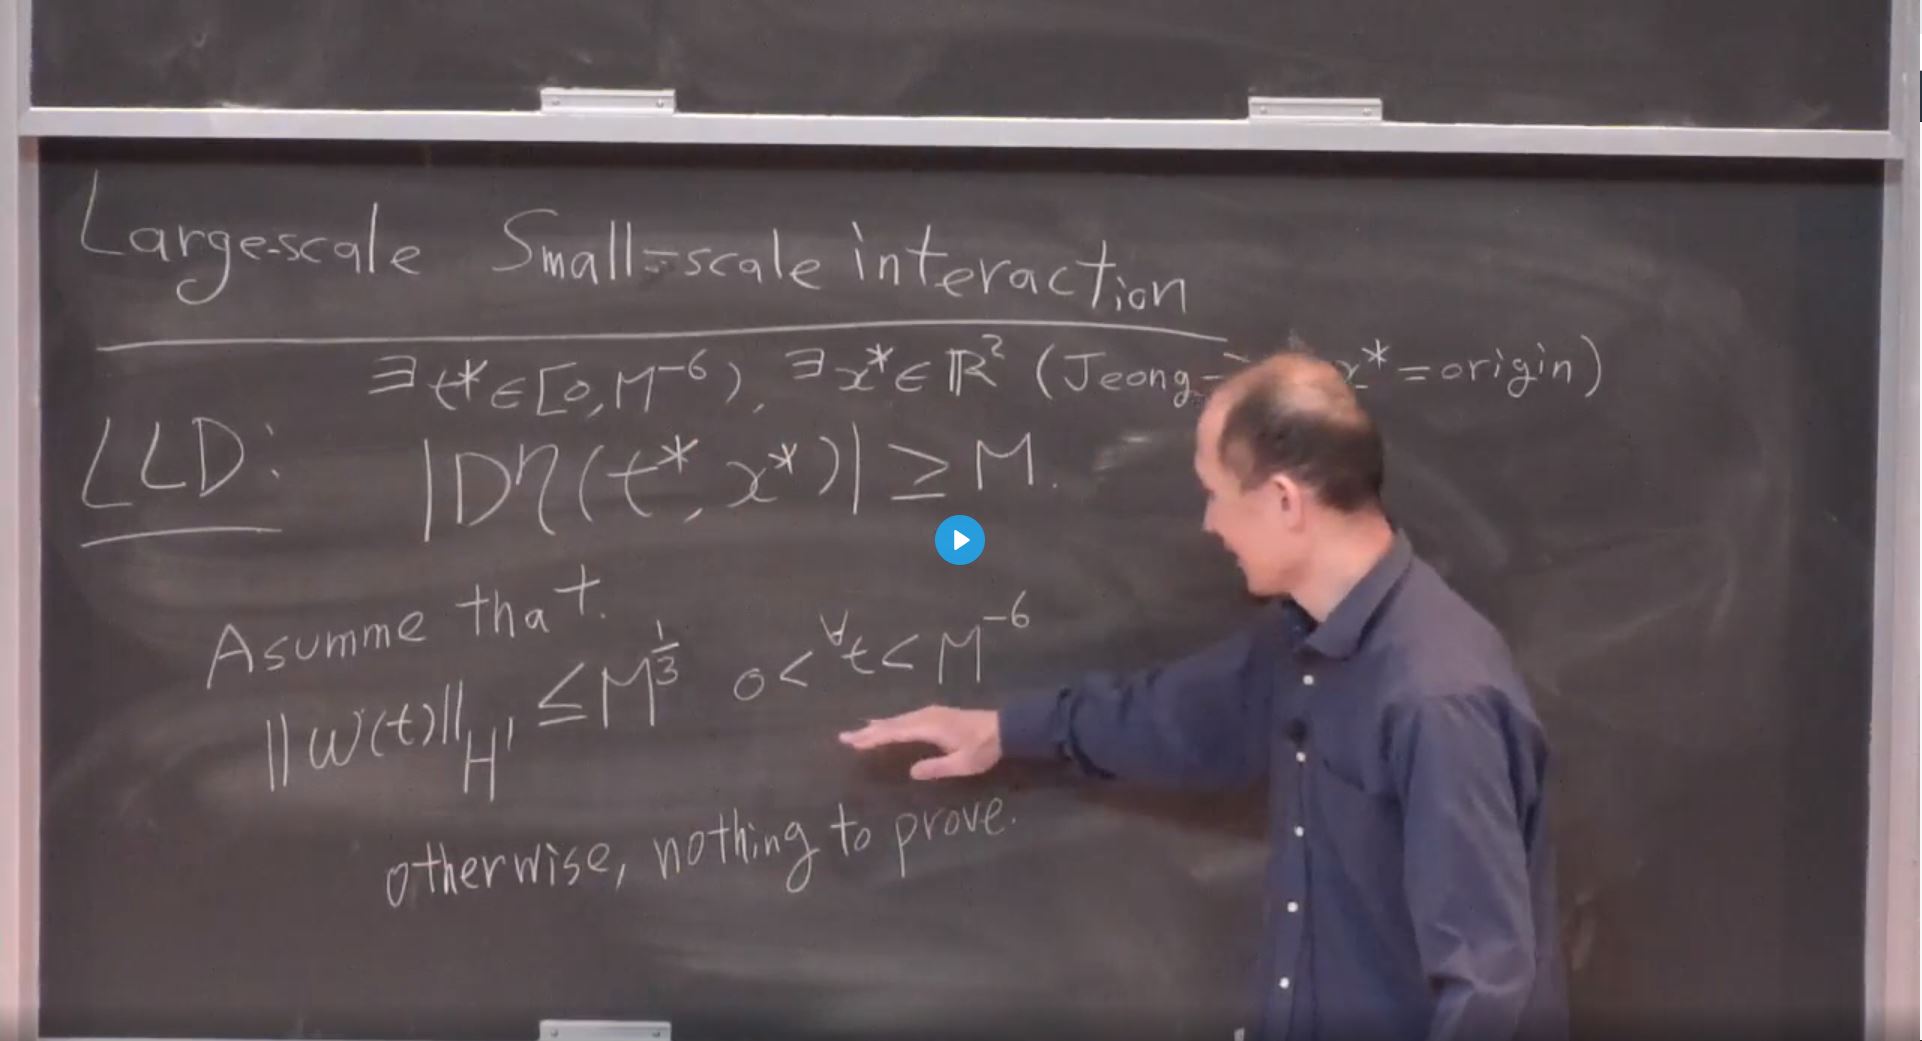 Large-scale Small-scale interaction
∃ t* ∈ [0, M⁻⁶), ∃ x* ∈ ℝ² (Jeong- x* = origin)
LLD: |Dη(t*, x*)| ≥ M.
Asumme that.
||ω(t)||_H¹ ≤ M^{1/3} 0 < ∀t < M⁻⁶
otherwise, nothing to prove.